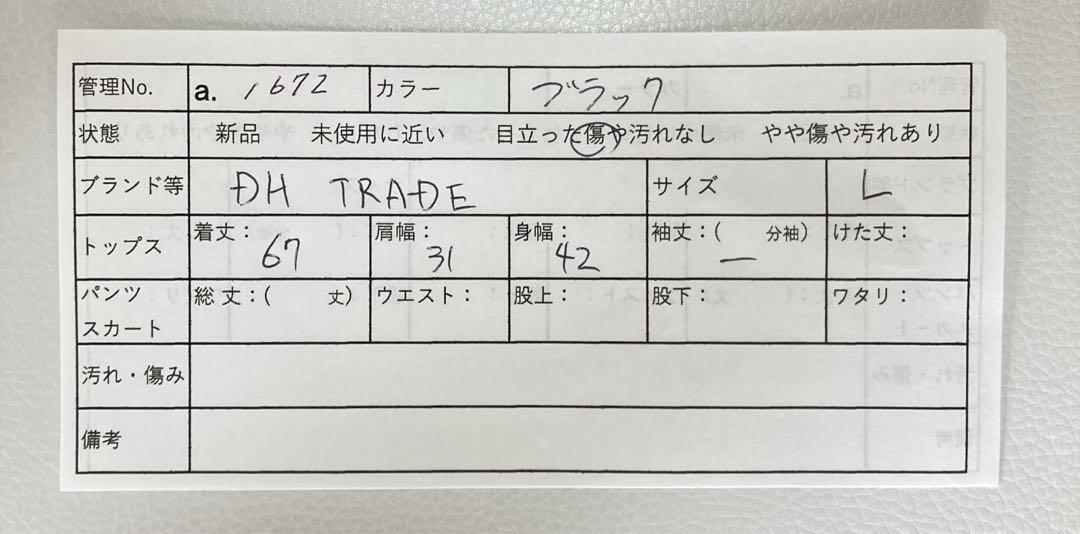 管理No. a. 1672 カラー ブラック
状態 新品 未使用に近い 目立った傷や汚れなし やや傷や汚れあり
ブランド等 DH TRADE サイズ L
トップス 着丈： 67 肩幅： 31 身幅： 42 袖丈：( 分袖) ー けた丈：
パンツ スカート 総丈：( 丈) ウエスト： 股上： 股下： ワタリ：
汚れ・傷み
備考